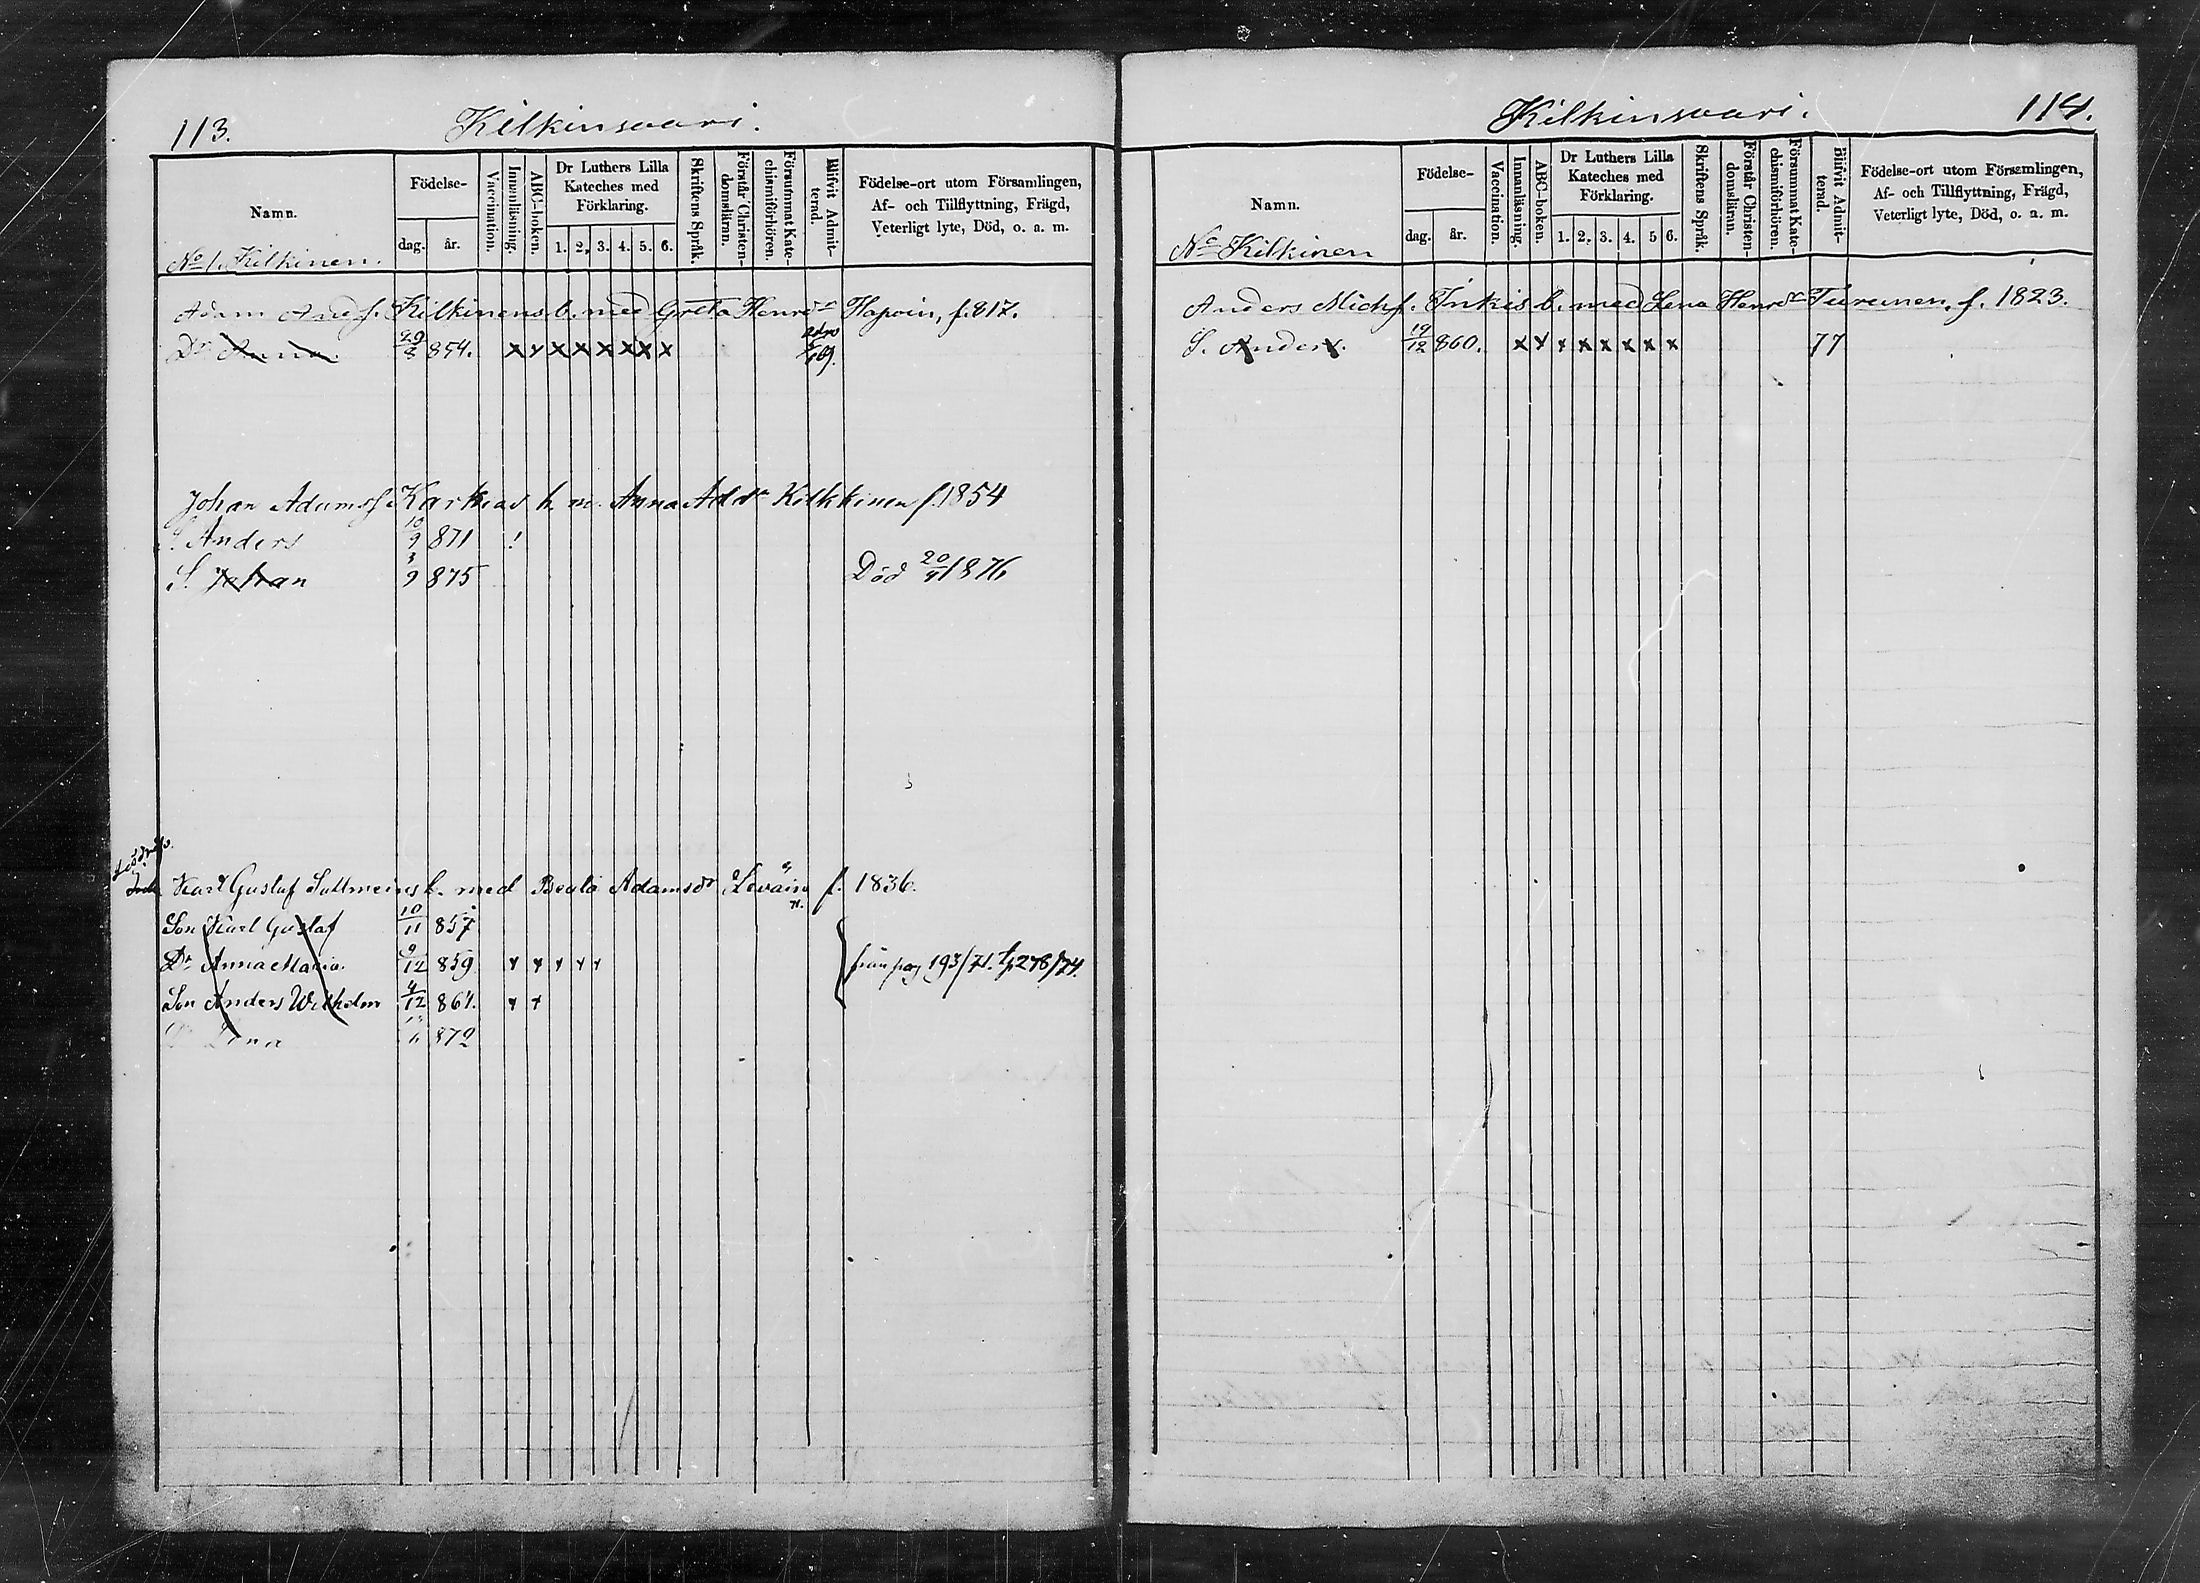 113.
Kilkinsaari.
Namn.
Födelse-
dag.
år.
Vaccination.
Innanläsning.
ABC-boken.
Dr Luthers Lilla
Kateches med
Förklaring.
1. 2. 3. 4. 5. 6.
Skriftens Språk.
Förstår Christen-
domsläran.
Försummat Kate-
chismiförhören.
Blifvit Admit-
terad.
Födelse-ort utom Församlingen,
Af- och Tillflyttning, Frägd,
Veterligt lyte, Död, o. a. m.
No 1. Kilkinen.
Adam And.s. Kilkinens b. med Greta Henrdr Hapoin, f. 817.
Dr Anna. 854. x x x x x x x x 69.
Johan Adamss. Karhus h. m. Anna Addr Kilkkinen f. 1854
S. Anders 10/9 871 !
S. Johan 3/9 875 Död 20/4 1876
Karl Gustaf b. med Beata Adamsdr Leväin f. 1836.
Son Karl Gustaf 10/11 857
Dr Anna Maria. 9/12 859 x x x x x från pag 193/71. 278/74.
Son Anders Wilhelm 4/12 864. x x
Dr Lena 872
Kilkinsaari.
114.
Namn.
Födelse-
dag.
år.
Vaccination.
Innanläsning.
ABC-boken.
Dr Luthers Lilla
Kateches med
Förklaring.
1. 2. 3. 4. 5 6.
Skriftens Språk.
Förstår Christen-
domsläran.
Försummat Kate-
chismiförhören.
Blifvit Admit-
terad.
Födelse-ort utom Församlingen,
Af- och Tillflyttning, Frägd,
Veterligt lyte, Död, o. a. m.
No Kilkinen
Anders Michs. Inkis b. med Lena Henrdr Turunen, f. 1823.
S. Anders. 19/12 860. x x x x x x x x 77